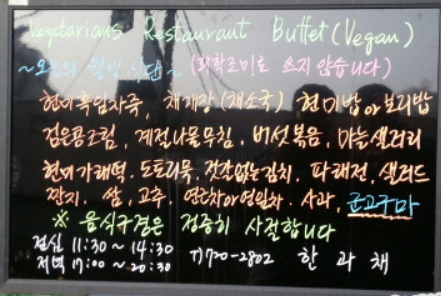 Vegetarians Restaurant Buffet (Vegan)
~오늘의 웰빙 식단~ (화학조미료 쓰지 않습니다)
현미흑임자죽, 채개장(채소국) 현미밥 or 보리밥
검은콩조림, 계절나물무침, 버섯볶음, 마늘샐러리
현미가래떡, 도토리묵, 젓갈없는김치, 파래전, 샐러드
짠지, 쌈, 고추, 연근차 or 연잎차, 사과, 군고구마
※ 음식구경은 정중히 사절합니다
점심 11:30 ~ 14:30
저녁 17:00 ~ 20:30 T)720-2802 한과채